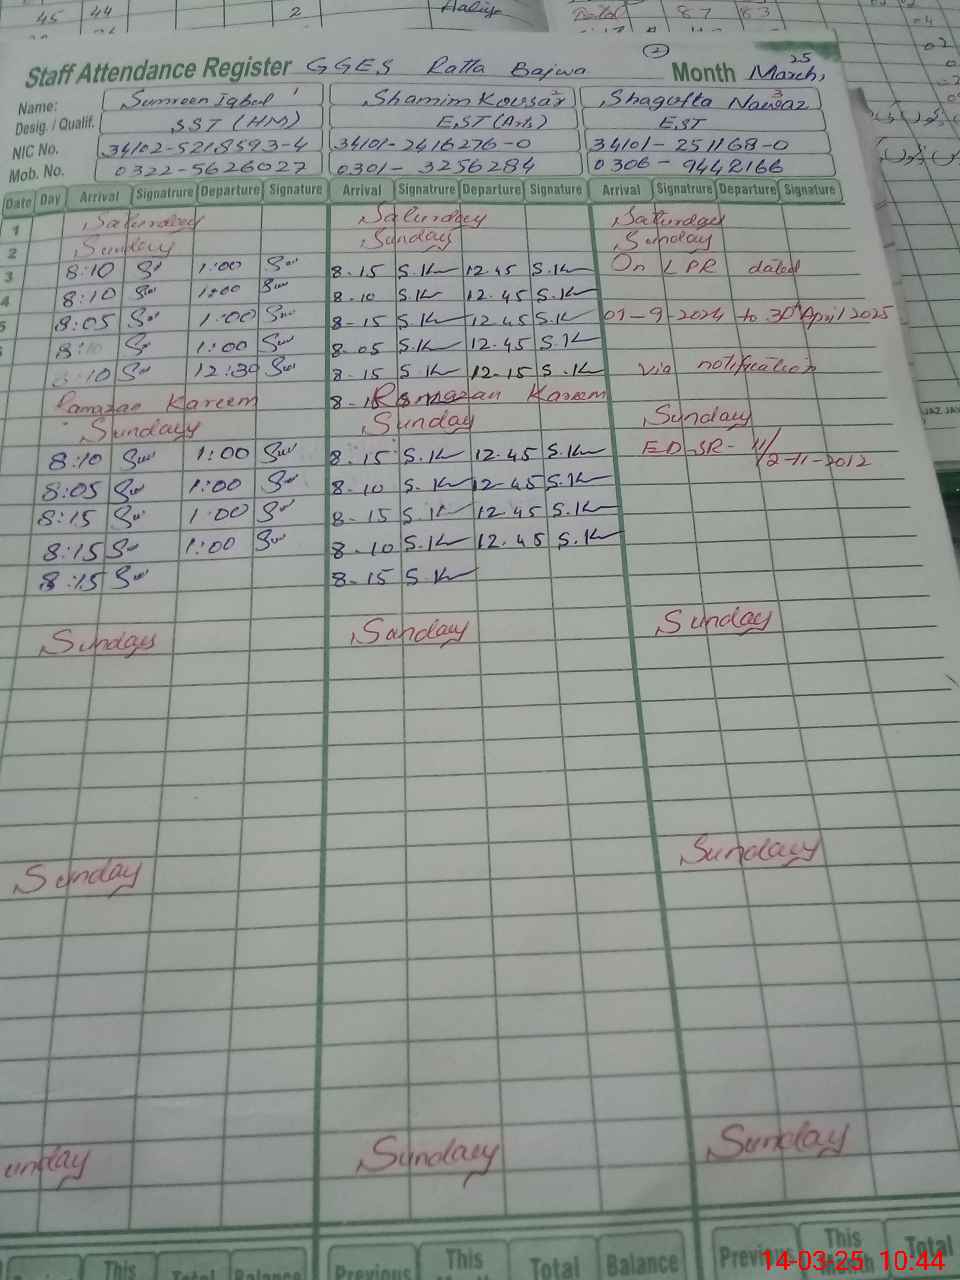 45 44 2
Total 87 83
04
02
2
Staff Attendance Register GGES Ratta Bajwa Month March, 25
Name: Sumreen Iqbal 1 Shamim Kousar 2 Shagufta Nawaz 3
Desig. / Qualif. SST (HM) EST (Arts) EST
NIC No. 34102-5218593-4 34101-2416276-0 34101-251168-0
Mob. No. 0322-5626027 0301-3256284 0306-9442166
Date Day Arrival Signatrure Departure Signature Arrival Signatrure Departure Signature Arrival Signatrure Departure Signature
1 Saturday Saturday Saturday
2 Sunday Sunday Sunday
3 8:10 1:00 8-15 S.K 12.45 S.K On LPR dated
4 8:10 1:00 8-10 S.K 12.45 S.K
5 8:05 1:00 8-15 S.K 12.45 S.K 01-9-2024 to 30 April 2025
8:10 1:00 8-05 S.K 12.45 S.K
8:10 12:30 8-15 S.K 12-15 S.K via notification
Ramazan Kareem 8-15 Ramazan Kareem
Sunday Sunday Sunday
8:10 1:00 8-15 S.K 12.45 S.K ED SR- 11/
8:05 1:00 8-10 S.K 12-45 S.K 2-11-2012
8:15 1:00 8-15 S.K 12.45 S.K
8:15 1:00 8-10 S.K 12.45 S.K
8:15 8-15 S.K
Sunday Sunday Sunday
Sunday Sunday
unday Sunday Sunday
This Total Balance Previous This Total Balance Previous This Month Total
14-03-25 10:44